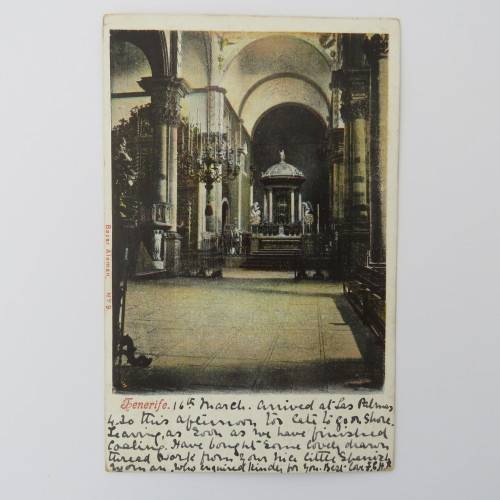 Bazar Aleman, Nº 9.
Tenerife. 16th March. Arrived at Las Palmas
4.30 this afternoon too late to go on Shore.
Leaving as soon as we have finished
Coaling. Have bought some lovely drawn
thread work from your nice little Spanish
woman, who enquired kindly for you. Best Love